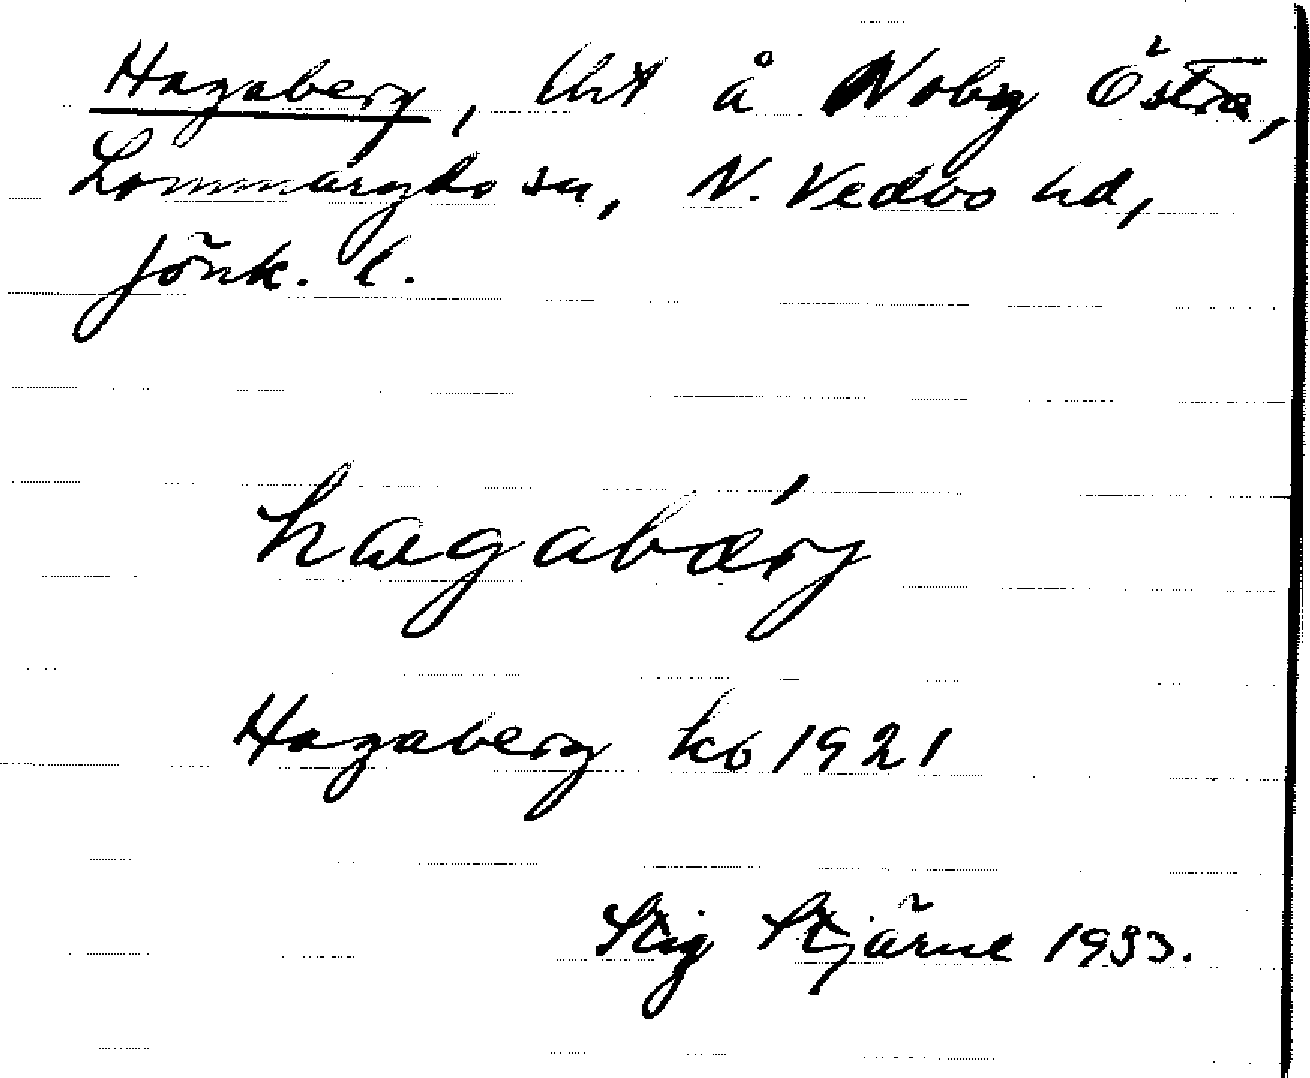 Hagaberg, lht å Noby Östra,
Lommaryds sn, N. Vedbo hd,
Jönk. l.
hagabärj
Hagaberg kb 1921
Stig Stjärne 1933.